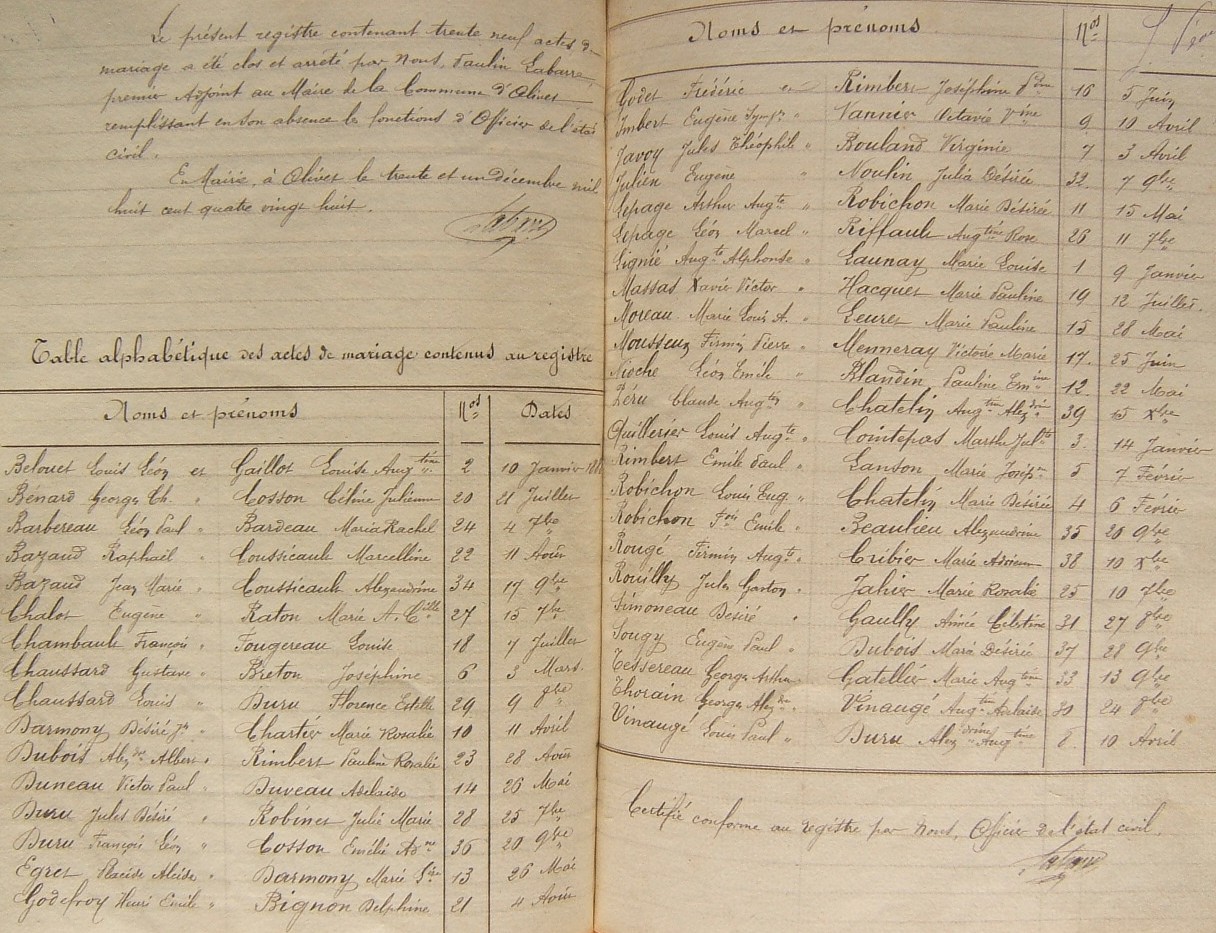 Le présent registre contenant trente neuf actes de
mariage a été clos et arrêté par Nous, Paulin Labarre
premier Adjoint au Maire de la Commune d'Olivet
remplissant en son absence les fonctions d'Officier de l'état
civil.
En Mairie, à Olivet le trente et un décembre mil
huit cent quatre vingt huit.
Table alphabétique des actes de mariage contenus au registre
Noms et prénoms Nos Dates
Belouet Louis Léon et Gaillot Louise Augtine 2 10 Janvier
Bénard Georges Ch. " Cosson Céline Julienne 20 21 Juillet
Barbereau Léon Paul " Bardeau Maria Rachel 24 4 7bre
Bazaud Raphaël " Toussicault Marcelline 22 11 Août
Bazaud Jean Marie " Coussicault Alexandrine 34 17 9bre
Chalot Eugène " Raton Marie A. 27 15 7bre
Chambault François " Fougereau Louise 18 7 Juillet
Chaussard Gustave " Breton Joséphine 6 3 Mars
Chaussard Louis " Duru Florence Estelle 29 9 8bre
Darmony Désiré " Chartier Marie Rosalie 10 11 Avril
Dubois Alexdre Albert " Rimbert Pauline Rosalie 23 28 Août
Duneau Victor Paul " Duveau Adelaïde 14 26 Mai
Duru Jules Désiré " Robinet Julie Marie 28 25 7bre
Duru François Léon " Cosson Emélie 36 20 9bre
Egret Placide Alcide " Darmony Marie 13 26 Mai
Godefroy Henri Emile " Bignon Delphine 21 4 Août
Noms et prénoms Nos
Godet Frédéric et Rimbert Joséphine 16 5 Juin
Imbert Eugène Symph " Vannier Octavie 9 10 Avril
Javoy Jules Théophile " Rouland Virginie 7 3 Avril
Julien Eugène " Noulin Julia Désirée 32 7 9bre
Lepage Arthur Augte " Robichon Marie Désirée 11 15 Mai
Lepage Léon Marcel " Riffault Augtine Rose 26 11 7bre
Lignié Augte Alphonse " Launay Marie Louise 1 9 Janvier
Massas Xavier Victor " Hacquet Marie Pauline 19 12 Juillet
Moreau Marie Louis A. " Leuret Marie Pauline 15 28 Mai
Mousseux Firmin Pierre " Menneray Victoire Marie 17 25 Juin
Nioche Léon Emile " Blandin Pauline 12 22 Mai
Péru Claude Augtin " Chatelin Augtine Alexdrine 39 15 Xbre
Quillerier Louis Augte " Cointepas Marthe 3 14 Janvier
Rimbert Emile Paul " Lanson Marie Joséphne 5 7 Février
Robichon Louis Eug. " Chatelin Marie Désirée 4 6 Février
Robichon Fois Emile " Beaulieu Alexandrine 35 20 9bre
Rougé Firmin Augte " Cribier Marie Adrienne 38 10 Xbre
Rouilly Jules Gaston " Jahier Marie Rosalie 25 10 7bre
Simoneau Désiré " Gaully Aimée Célestine 31 27 8bre
Sougy Eugène Paul " Dubois Maria Désirée 37 28 9bre
Tessereau Georges Arthur " Gatellier Marie Augtine 33 13 9bre
Thorain Georges Alexdre " Vinaugé Augtine Adelaïde 30 24 8bre
Vinaugé Louis Paul " Duru Alexdrine Augtine 8 10 Avril
Certifié conforme au registre par Nous, Officier de l'état civil.